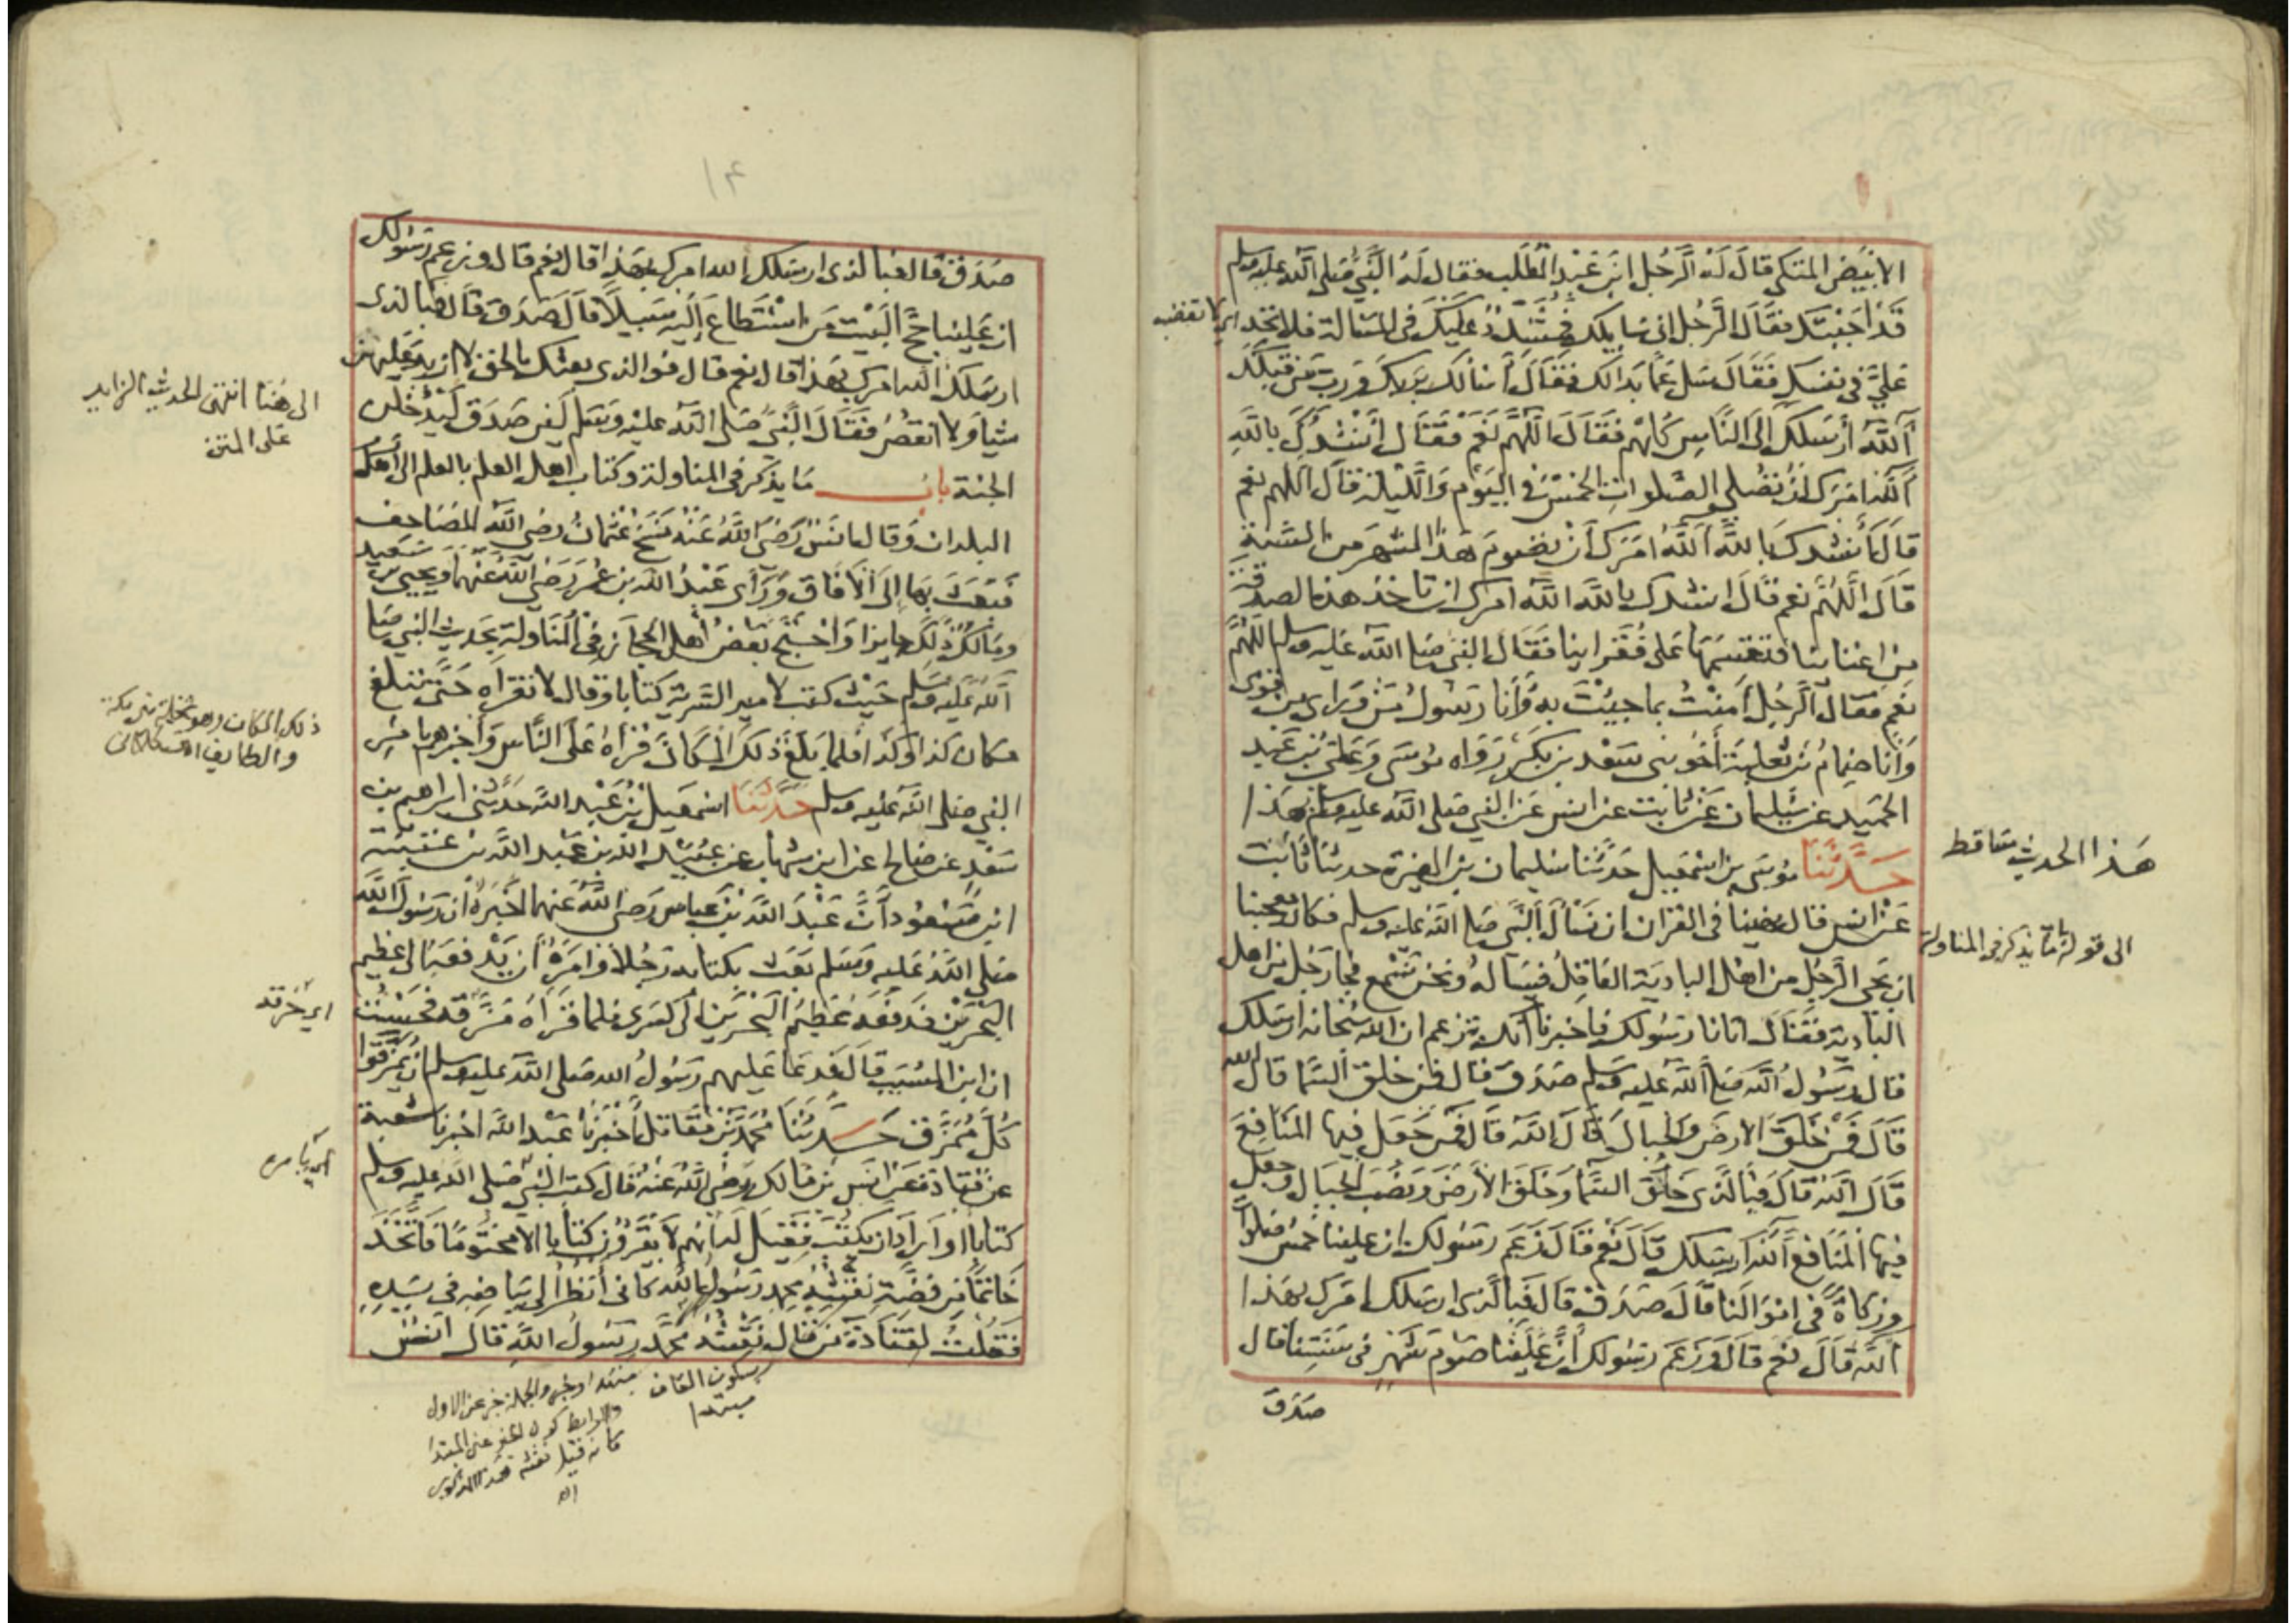 الابيض المتكي قال له الرجل ابن عبد المطلب فقال له النبي صلى الله عليه وسلم
قد اجبتك فقال الرجل اني سايلك فمشدد عليك في المسالة فلا تجد
اي لا تغضب
علي في نفسك فقال سل عما بدا لك فقال أسالك بربك ورب من قبلك
آلله أرسلك الى الناس كلهم فقال اللهم نعم فقال أنشدك بالله
آلله امرك ان نصلي الصلوات الخمس في اليوم والليلة قال اللهم نعم
قال أنشدك بالله آلله امرك أن نصوم هذا الشهر من السنة
قال اللهم نعم قال انشدك بالله الله امرك ان تاخذ هذه الصدقة
من اغنيائنا فتقسمها على فقراينا فقال النبي صلى الله عليه وسلم اللهم
نعم فقال الرجل آمنت بما جيئت به وأنا رسول من وراي من قومي
وأنا ضمام بن ثعلبة أخو بني سعد بن بكر رواه موسى وعلي بن عبد
الحميد عن سليمان عن ثابت عن انس عن النبي صلى الله عليه وسلم بهذا
حدثنا موسى بن اسمعيل حدثنا سليمان بن المغيرة حدثنا ثابت
هذا الحديث ساقط
عن انس قال نهينا في القران ان نسأل النبي صلى الله عليه وسلم فكان يعجبنا
الى قوله باب ما يذكر في المناولة
ان يجي الرجل من اهل البادية العاقل فيساله ونحن نسمع فجا رجل من اهل
البادية فقال اتانا رسولك فاخبرنا أنك تزعم ان الله سبحانه ارسلك
قال رسول الله صلى الله عليه وسلم صدق قال فمن خلق السما قال الله
قال فمن خلق الارض والجبال قال الله قال فمن جعل فيها المنافع
قال الله قال فبالذي خلق السما وخلق الأرض ونصب الجبال وجعل
فيها المنافع آلله ارسلك قال نعم قال زعم رسولك ان علينا خمس صلوات
وزكاة في اموالنا قال صدق قال فبالذي ارسلك امرك بهذا
آلله قال نعم قال وزعم رسولك أن علينا صوم شهر في سنتنا قال
صدق
١٤
صدق قال فبالذي ارسلك آلله امرك بهذا قال نعم قال وزعم رسولك
ان علينا حج البيت من استطاع إليه سبيلا قال صدق قال فبالذي
ارسلك آلله امرك بهذا قال نعم قال فوالذي بعثك بالحق لا ازيد عليهن
شيا ولا انقص فقال النبي صلى الله عليه وسلم لين صدق ليدخلن
الى هنا انتهى الحديث الزايد
على المتن
الجنة باب ما يذكر في المناولة وكتاب اهل العلم بالعلم الى أهل
البلدان وقال انس رضي الله عنه نسخ عثمان رضي الله المصاحف
فبعث بها إلى الآفاق ورأى عبد الله بن عمر رضي الله عنهما ويحيى بن سعيد
ومالك ذلك جايزا واحتج بعض أهل الحجاز في المناولة بحديث النبي صلى
الله عليه وسلم حيث كتب لامير السرية كتابا وقال لا تقراه حتى تبلغ
مكان كذا وكذا فلما بلغ ذلك المكان قرأه على الناس وأخبرهم بامر
ذلك المكان وهو نخلة بين مكة
والطايف
النبي صلى الله عليه وسلم حدثنا اسمعيل بن عبد الله حدثني ابراهيم بن
سعد عن صالح عن ابن شهاب عن عبيد الله بن عبد الله بن عتبة
ابن مسعود أن عبد الله بن عباس رضي الله عنهما اخبره ان رسول الله
صلى الله عليه وسلم بعث بكتابه رجلا وامره أن يدفعه الى عظيم
البحرين فدفعه عظيم البحرين الى كسرى فلما قرأه مزقه فحسبت
اي خرقه
ان ابن المسيب قال فدعا عليهم رسول الله صلى الله عليه وسلم ان يمزقوا
كل ممزق حدثنا محمد بن مقاتل أخبرنا عبد الله اخبرنا شعبة
عن قتادة عن انس بن مالك رضي الله عنه قال كتب النبي صلى الله عليه وسلم
كتابا او اراد ان يكتب فقيل له انهم لا يقرؤن كتابا الا مختوما فاتخذ
خاتما من فضة نقشه محمد رسول الله كاني أنظر إلى بياضه في يده
فقلت لقتادة من قال نقشه محمد رسول الله قال انس
بسكون القاف
مبتدا
مبتدا وخبر والجملة خبر عن الاول
والرابط كون الخبر عين المبتدا
كانه قيل نقشه هذا